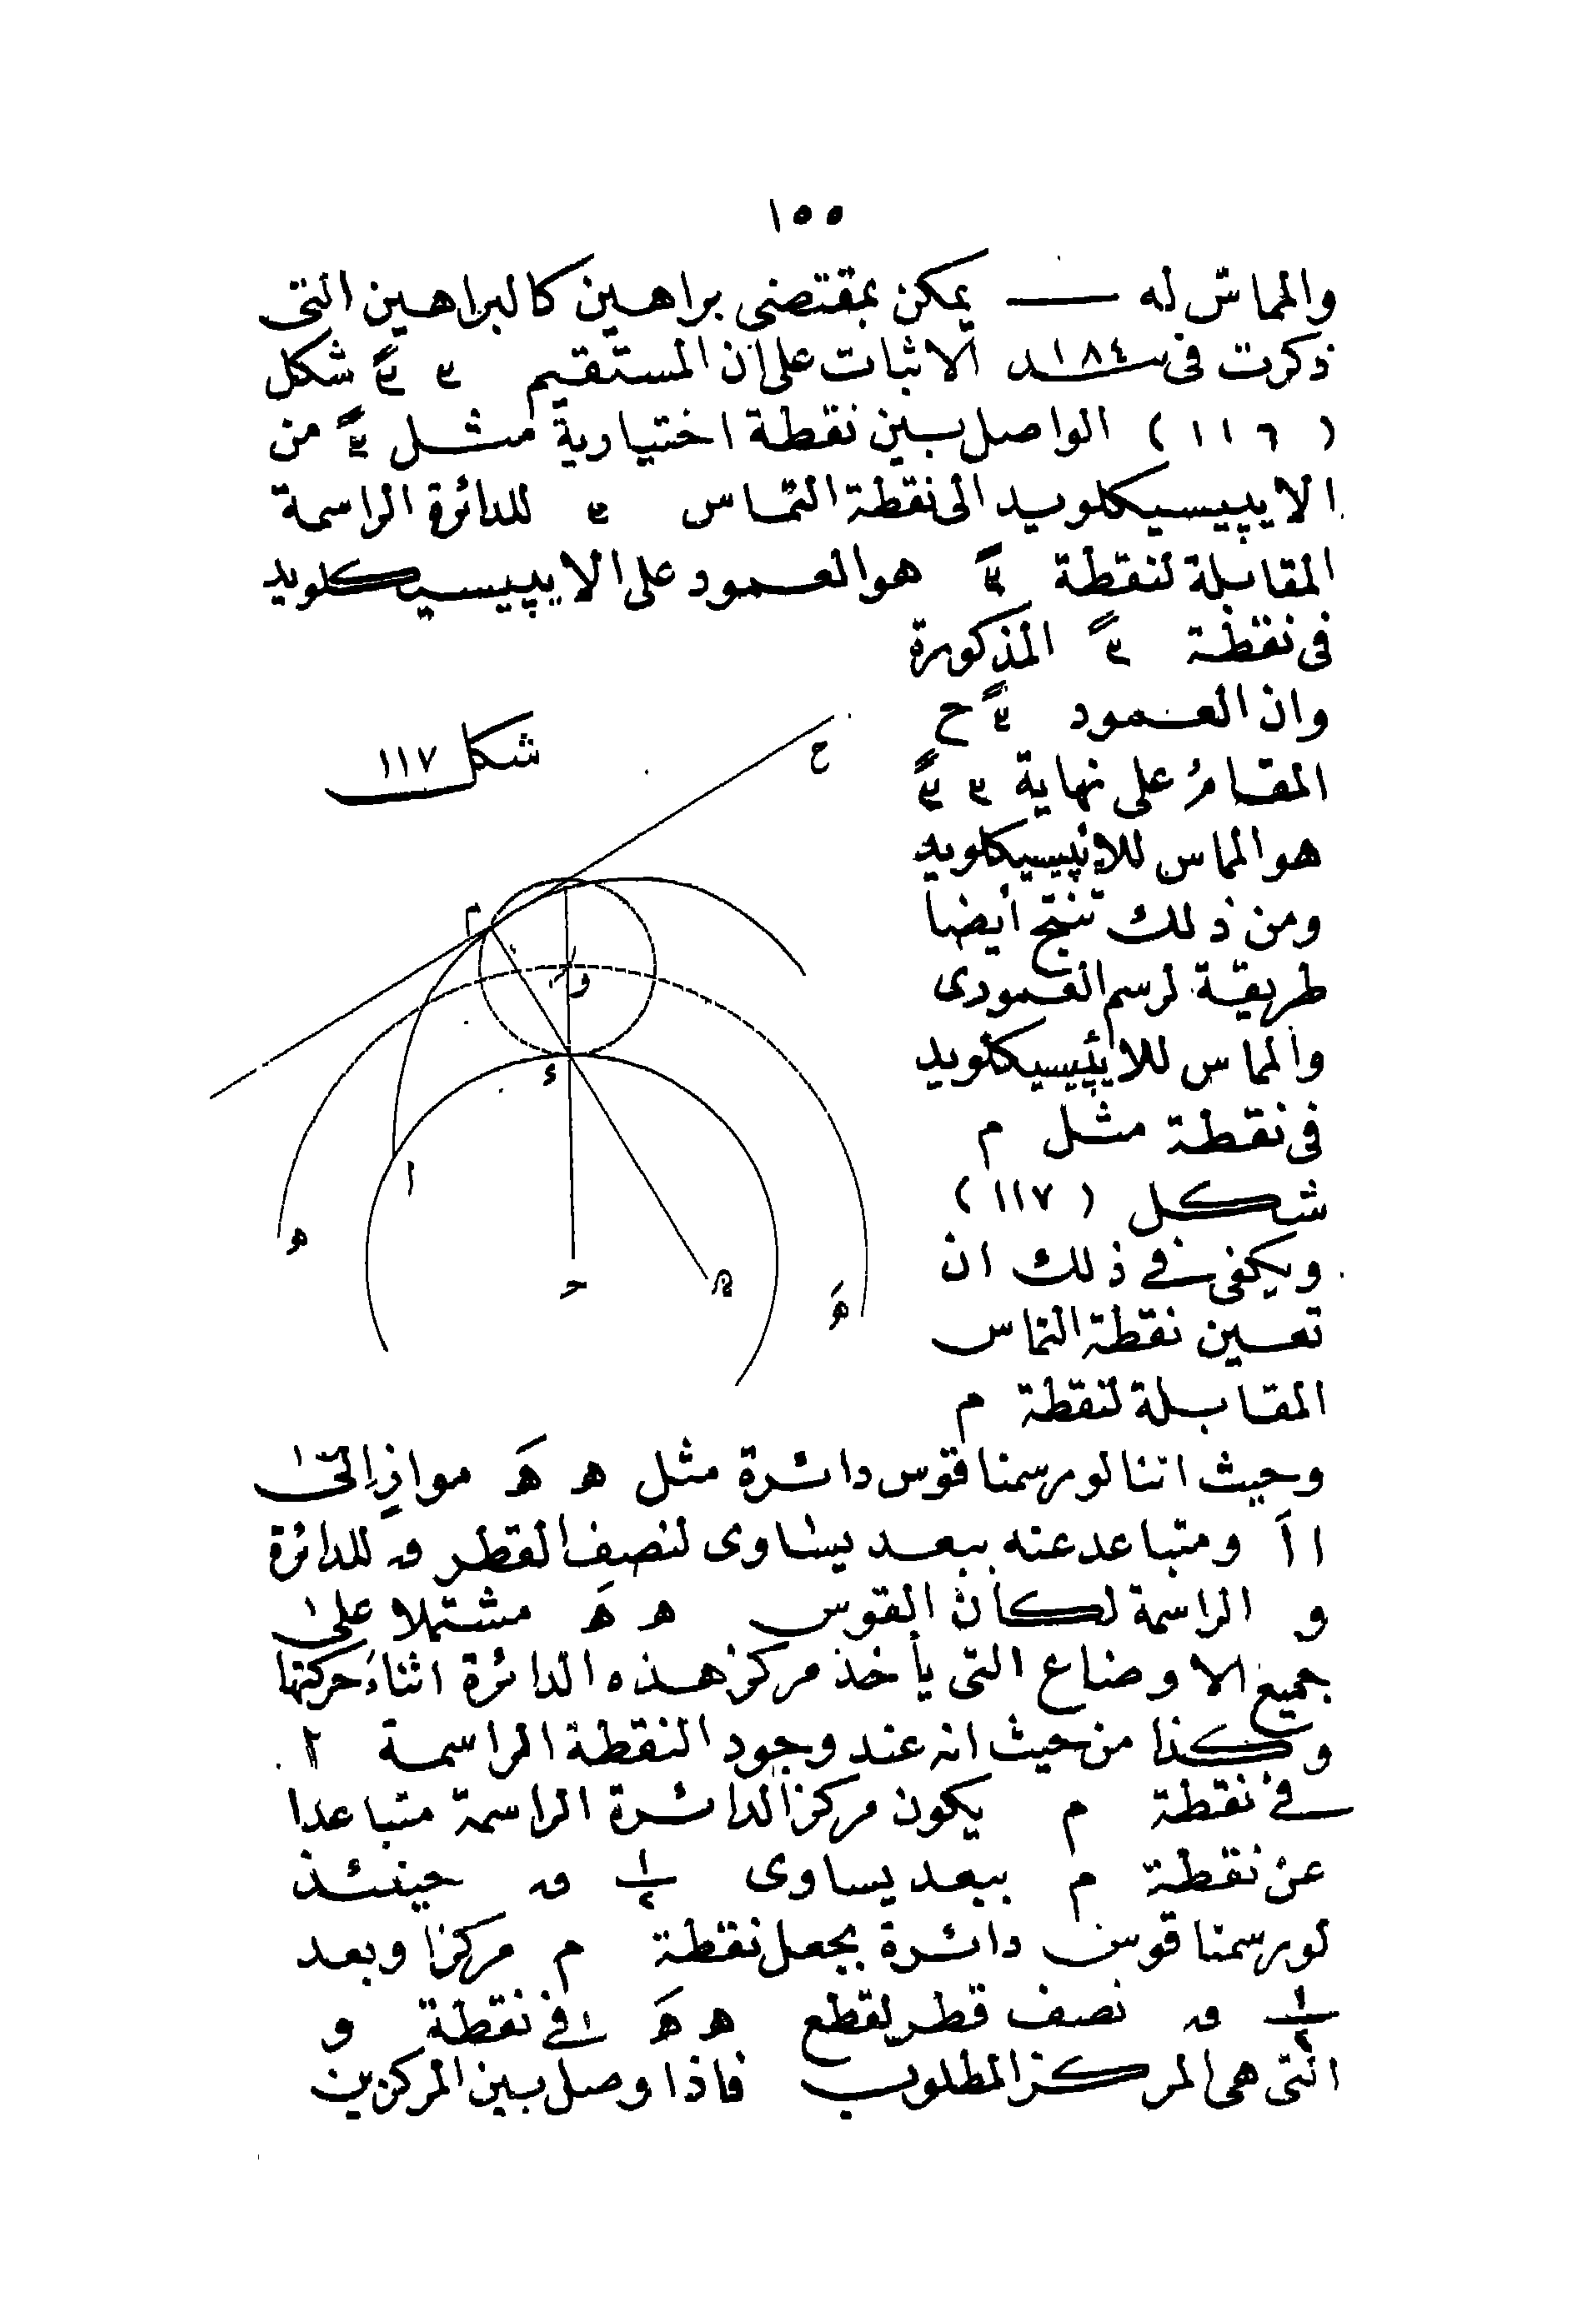 ١٥٥
والمماس له — يمكن بمقتضى براهين كالبراهين التى
ذكرت فى ١٨٤ الاثبات على ان المستقيم شكل
(١١٦) الواصل بين نقطة اختيارية مثل من
الايپيسيكلويد الى نقطة التماس للدائرة الراسمة
المقابلة لنقطة هو العمود على الايپيسيكلويد
فى نقطة المذكورة
وان العمود ح
المقام على نهاية
هو المماس للايپيسيكلويد
ومن ذلك تنتج أيضا
طريقة لرسم العمودى
والمماس للايپيسيكلويد
فى نقطة مثل م
شكل (١١٧)
ويكفى فى ذلك ان
تعين نقطة التماس
المقابلة لنقطة م
شكل ١١٧
ح
م
و
ء
ا
ه
حـ
هَ
وحيث اننا لو رسمنا قوس دائرة مثل ه هَ موازٍ الى
ا اَ ومتباعد عنه ببعد يساوى لنصف القطر للدائرة
و الراسمة لكان القوس ه هَ مشتملا على
جميع الاوضاع التى يأخذ مركز هذه الدائرة اثناء حركتها
وكذا من حيث انه عند وجود النقطة الراسمة
فى نقطة م يكون مركز الدائرة الراسمة متباعدا
عن نقطة م ببعد يساوى ١/٢ حينئذ
لو رسمنا قوس دائرة بجعل نقطة م مركزا وبعد
١/٢ نصف قطر لقطع ه هَ فى نقطة و
التى هى المركز المطلوب فاذا وصل بين المركزين